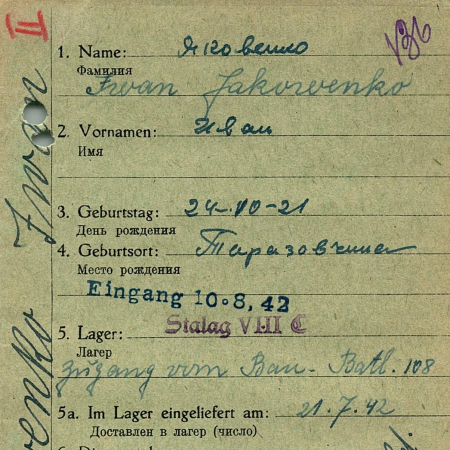 II
1. Name: Яковенко
Фамилия
Iwan Jakowenko
2. Vornamen: Иван
Имя
3. Geburtstag: 24-10-21
День рождения
4. Geburtsort: Таразовчина
Место рождения
Eingang 10.8.42
Stalag VIII C
5. Lager:
Лагер
Zugang vom Bau-Batl. 108
5a. Im Lager eingeliefert am: 21.7.42
Доставлен в лагер (число)
Iwan